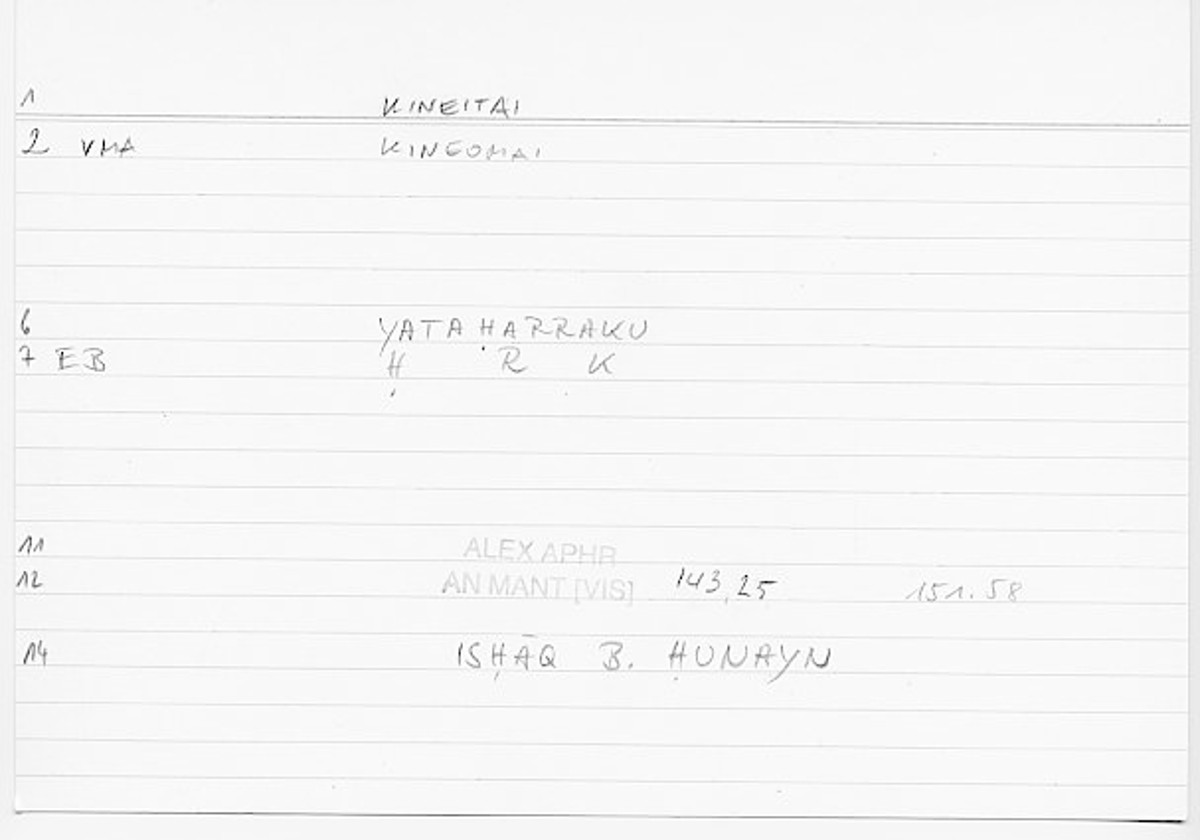 1 KINEITAI
2 VMA KINEOMAI
6 YATAḤARRAKU
7 EB Ḥ R K
11 ALEX APHR
12 AN MANT [VIS] 143,25 151.58
14 ISḤĀQ B. ḤUNAYN